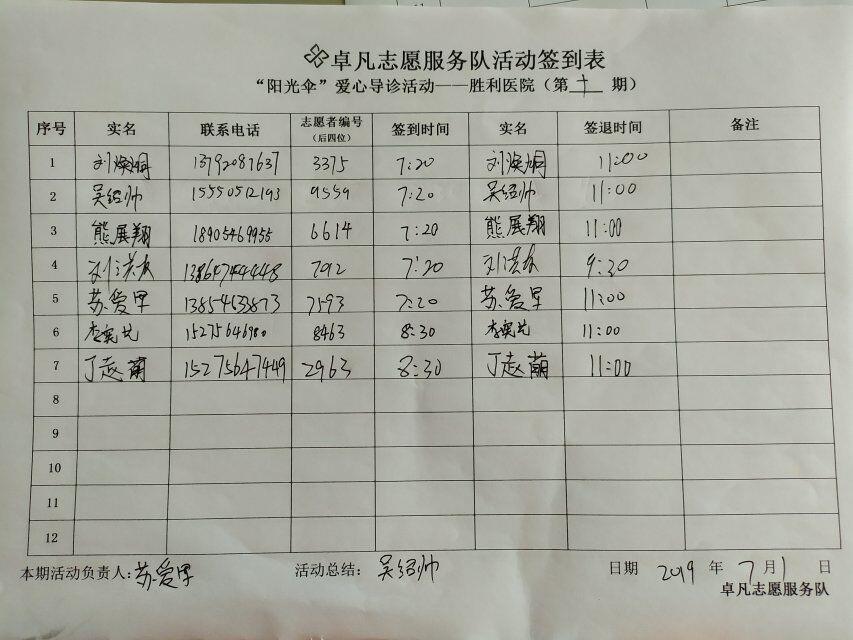 卓凡志愿服务队活动签到表
“阳光伞”爱心导诊活动——胜利医院（第十期）
序号 实名 联系电话 志愿者编号（后四位） 签到时间 实名 签退时间 备注
1 13792087637 3375 7:20 11:00
2 吴绍帅 15550512193 9559 7:20 吴绍帅 11:00
3 熊展翔 18905469955 6614 7:20 熊展翔 11:00
4 13864744448 7092 7:20 9:30
5 苏爱早 13854633873 7593 7:20 苏爱早 11:00
6 15275646980 8463 8:30 11:00
7 15275647449 2963 8:30 11:00
8
9
10
11
12
本期活动负责人:苏爱早 活动总结：吴绍帅 日期 2019 年 7 月 1 日
卓凡志愿服务队